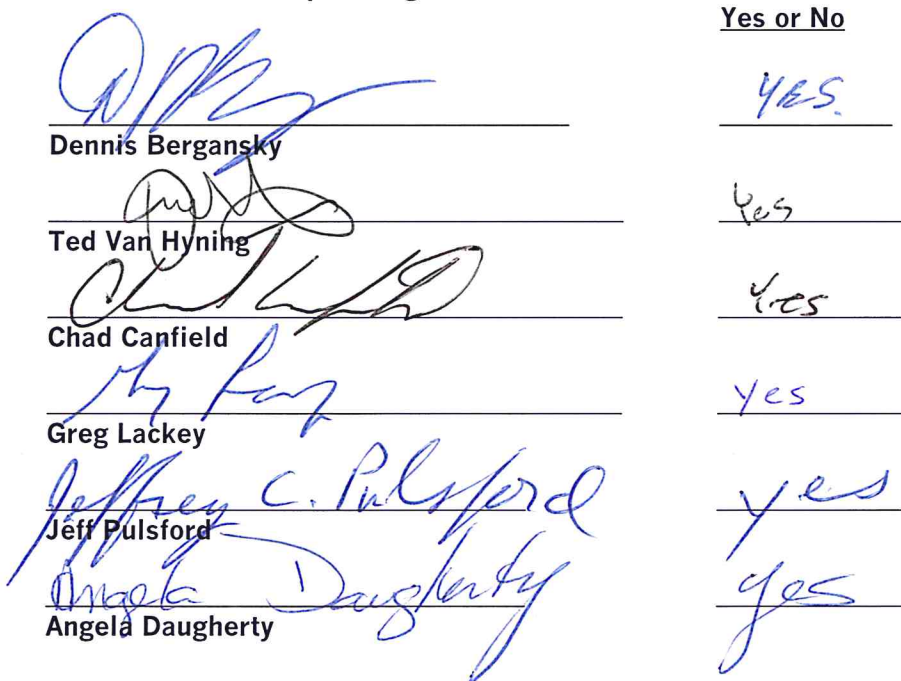 Yes or No
YES.
Dennis Bergansky
Yes
Ted Van Hyning
Yes
Chad Canfield
yes
Greg Lackey
Jeffrey C. Pulsford yes
Jeff Pulsford
Angela Daugherty yes
Angela Daugherty